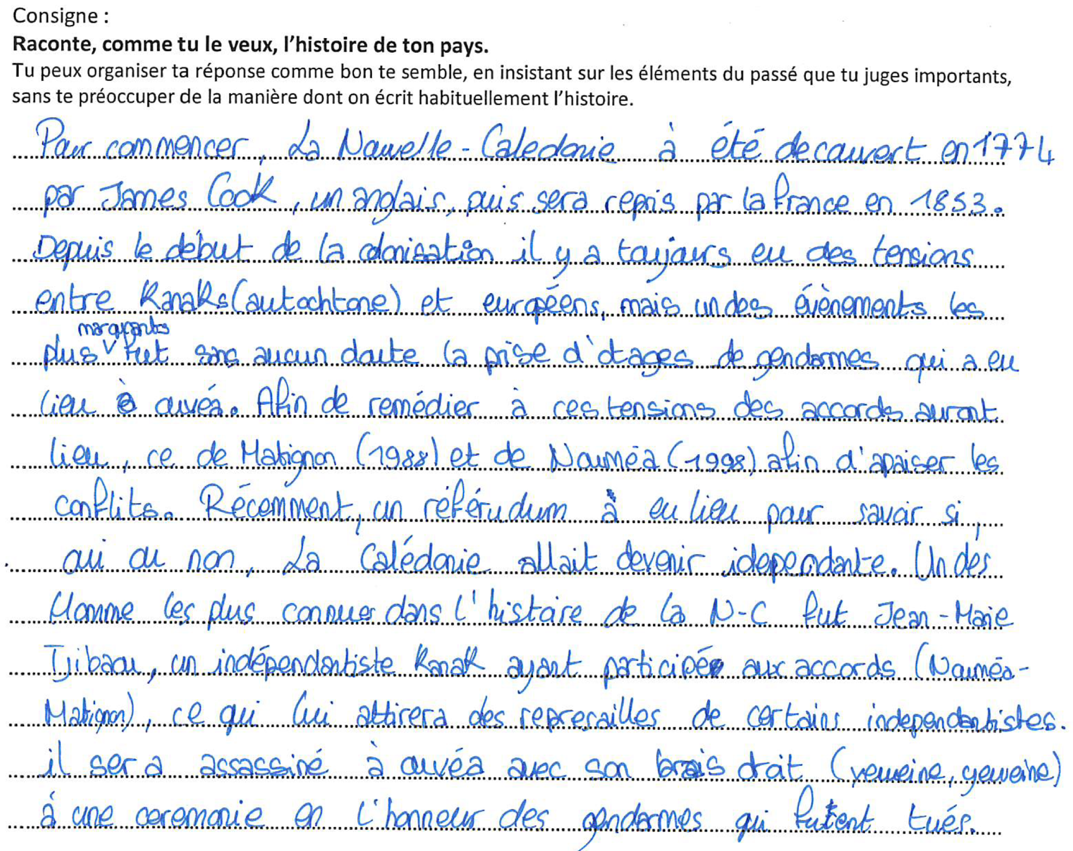 Consigne :
Raconte, comme tu le veux, l'histoire de ton pays.
Tu peux organiser ta réponse comme bon te semble, en insistant sur les éléments du passé que tu juges importants,
sans te préoccuper de la manière dont on écrit habituellement l'histoire.
Pour commencer, La Nouvelle-Caledonie à été decouvert en 1774
par James Cook, un anglais, puis sera repris par la France en 1853.
Depuis le début de la colonisation il y a toujours eu des tensions
entre Kanaks (autochtone) et européens, mais un des évènements les
plus marquants fut sans aucun doute la prise d'otages de gendarmes qui a eu
lieu à ouvéa. Afin de remédier à ces tensions des accords auront
lieu, ce de Matignon (1988) et de Nouméa (1998) afin d'apaiser les
conflits. Récemment, un référudum à eu lieu pour savoir si,
oui ou non, La Calédonie allait devenir idependante. Un des
Homme les plus connues dans l'histoire de la N-C fut Jean-Marie
Tjibaou, un indépendantiste Kanak ayant participée aux accords (Nouméa-
Matignon), ce qui lui attirera des represailles de certains independantistes.
il sera assassiné à ouvéa avec son brais droit (yeweine, yeweine)
à une ceremonie en l'honneur des gendarmes qui furent tués.